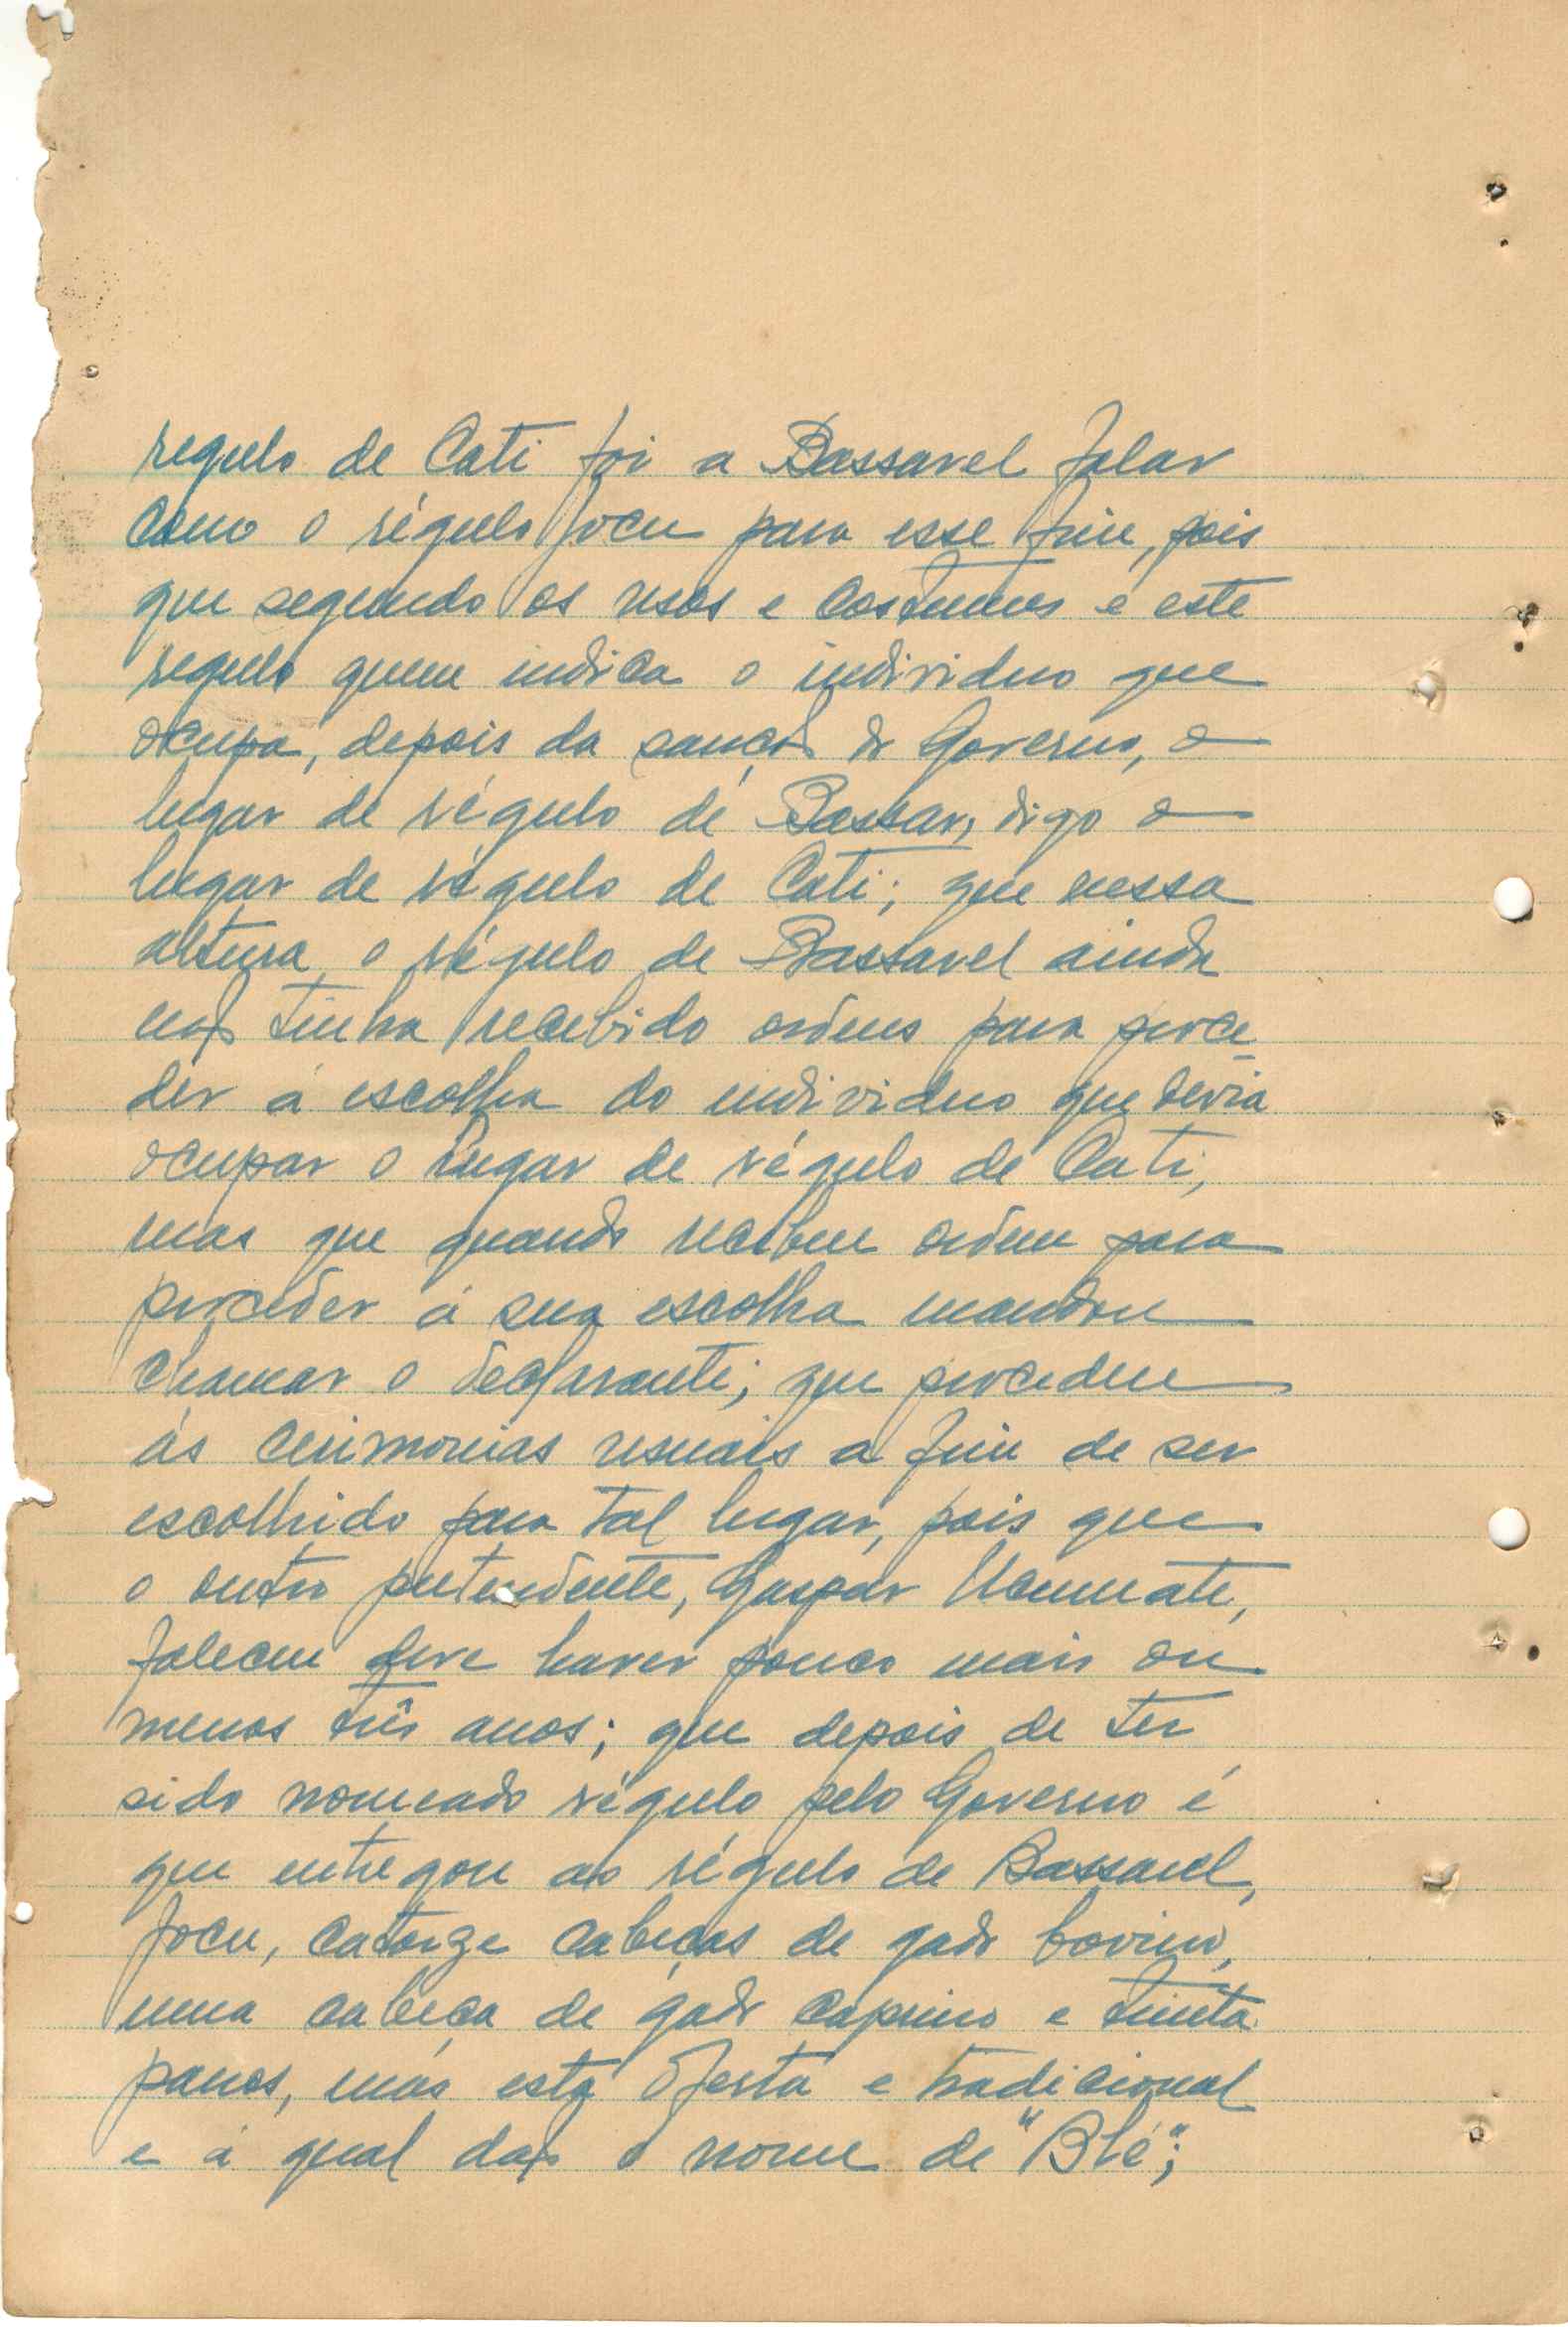 regulo de Cati foi a Bassarel falar
com o régulo Jocu para esse fim, pois
que segundo os usos e costumes é este
regulo quem indica o individuo que
ocupa, depois da sanção do Governo, o
lugar de régulo de Bassar, digo o
lugar de régulo de Cati; que nessa
altura o régulo de Bassarel ainda
não tinha recebido ordens para proce-
der á escolha do individuo que devia
ocupar o lugar de régulo de Cati,
mas que quando recebeu ordem para
proceder á sua escolha mandou
chamar o declarante; que procedeu
ás cerimonias usuais a fim de ser
escolhido para tal lugar, pois que
o outro pretendente, Gaspar
faleceu deve haver pouco mais ou
menos três anos; que depois de ter
sido nomeado régulo pelo Governo é
que entregou ao régulo de Bassarel,
Jocu, catorze cabeças de gado bovino,
uma cabeça de gado caprino e trinta
panos, mas esta oferta é tradicional
e á qual dão o nome de "Blé";